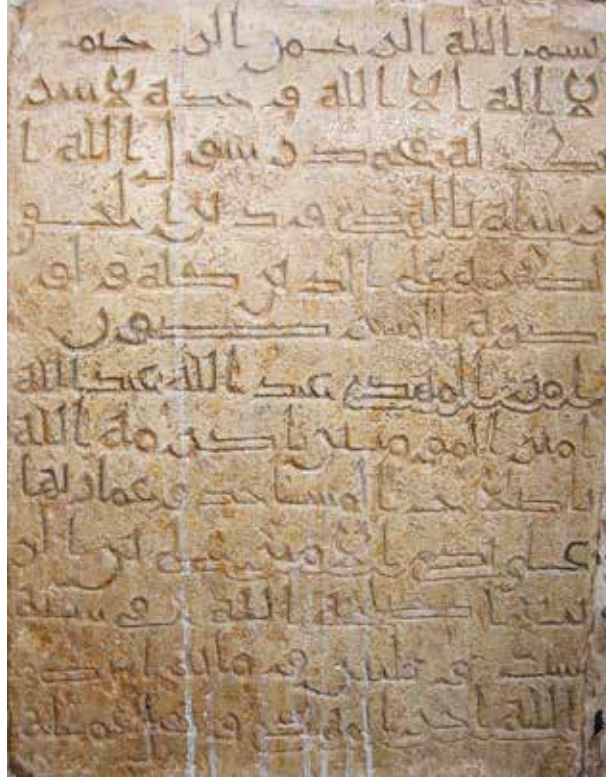 بسم الله الرحمن الرحيم
لا اله الا الله وحده لا شر
يك له محمد رسول الله ا
رسله بالهدى ودين الحق
ليظهره على الدين كله ولو
كره المشركون
امر المهدي عبد الله عبد الله
امير المومنين اكرمه الله
باصلاح المساجد وعمارتها
على يدي الامير علي بن الر
بيع اصلحه الله في سنة
ست وثلثين ومايه
الله اجر المهدي